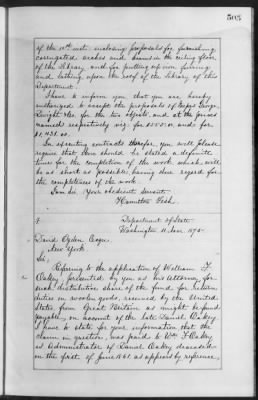 505
of the 10th inst. enclosing proposals for furnishing
corrugated arches and beams in the ceiling floor
of the Library, and for putting up iron furring
and lathing upon the roof of the Library of this
Department.
I have to inform you that you are hereby
authorized to accept the proposals of Messrs George
Dwight &co. for the two objects, and at the prices
named respectively viz: for and for
In executing contracts therefor, you will please
require that there should be stated a definite
time for the completion of the work which will
be as short as possible, having due regard for
the completeness of the work.
I am Sir, Your obedient Servant
Hamilton Fish.
Department of State
Washington 11 Jan. 1873-
David Ogden Esqre.
New York
Sir,
Referring to the application of William F.
Oakey, presented by you as his Attorney, for
such distributive share of the fund for return
duties on woolen goods, received by the United
States from Great Britain as might be found
payable, on account of the late Daniel Oakey,
I have to state for your information that the
claim in question, was paid to Wm F. Oakey
as Administrator of Daniel Oakey, deceased
on the first of June 1861 as appears by reference